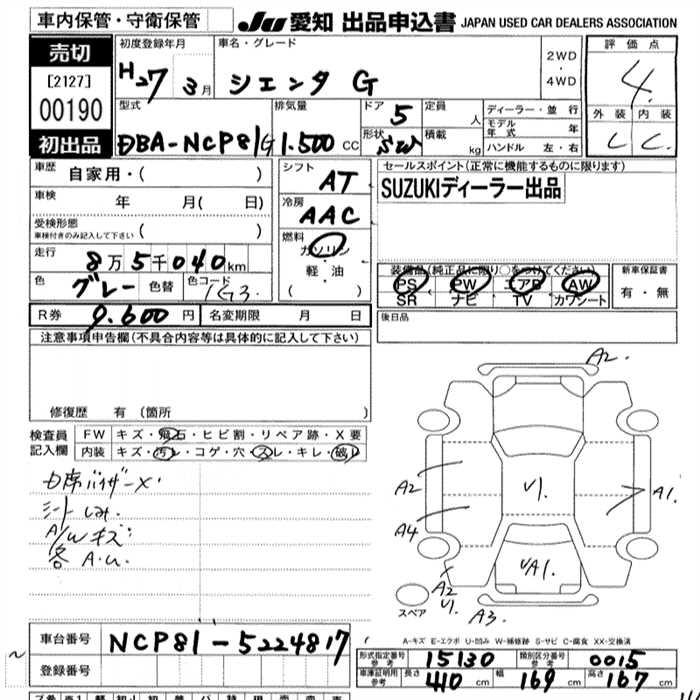 車内保管・守衛保管
JU 愛知 出品申込書 JAPAN USED CAR DEALERS ASSOCIATION
売切
[2127]
00190
初出品
初度登録年月
H27 3月
車名・グレード
シエンタ G
2WD
・
4WD
評価点
4.
外装 内装
C C.
型式
DBA-NCP81G
排気量
1.500 CC
ドア 5
形状 SW
定員 人
積載 kg
ディーラー・並行
モデル年式 年
ハンドル 左・右
車歴 自家用・( )
車検 年 月( 日)
受検形態
車検付きのみ記入して下さい ( )
走行 8万5千040km
色 グレー 色替 色コード 1G3
R券 9.600円 名変期限 月 日
シフト AT
冷房 AAC
燃料 ガソリン
軽・油
( )
セールスポイント(正常に機能するものに限ります)
SUZUKIディーラー出品
装備品(純正品に限り○をつけてください)
PS PW エアB AW
SR ナビ TV カワシート
新車保証書
有・無
後日品
注意事項申告欄(不具合内容等は具体的に記入して下さい)
修復歴 有 (箇所 )
検査員記入欄
FW キズ・飛石・ヒビ割・リペア跡・X要
内装 キズ・汚レ・コゲ・穴・スレ・キレ・破レ
シートしみ.
A/Wキズ
各A.U.
A2.
A2
A4
U1.
A1.
UA1.
X
A2
U1.
A3.
スペア
A-キズ E-エクボ U-凹み W-補修跡 S-サビ C-腐食 XX-交換済
車台番号 NCP81-5224817
登録番号
形式指定番号 参考 15130 類別区分番号 参考 0015
車庫証明用 参考 長さ 410 cm 幅 169 cm 高さ 167 cm